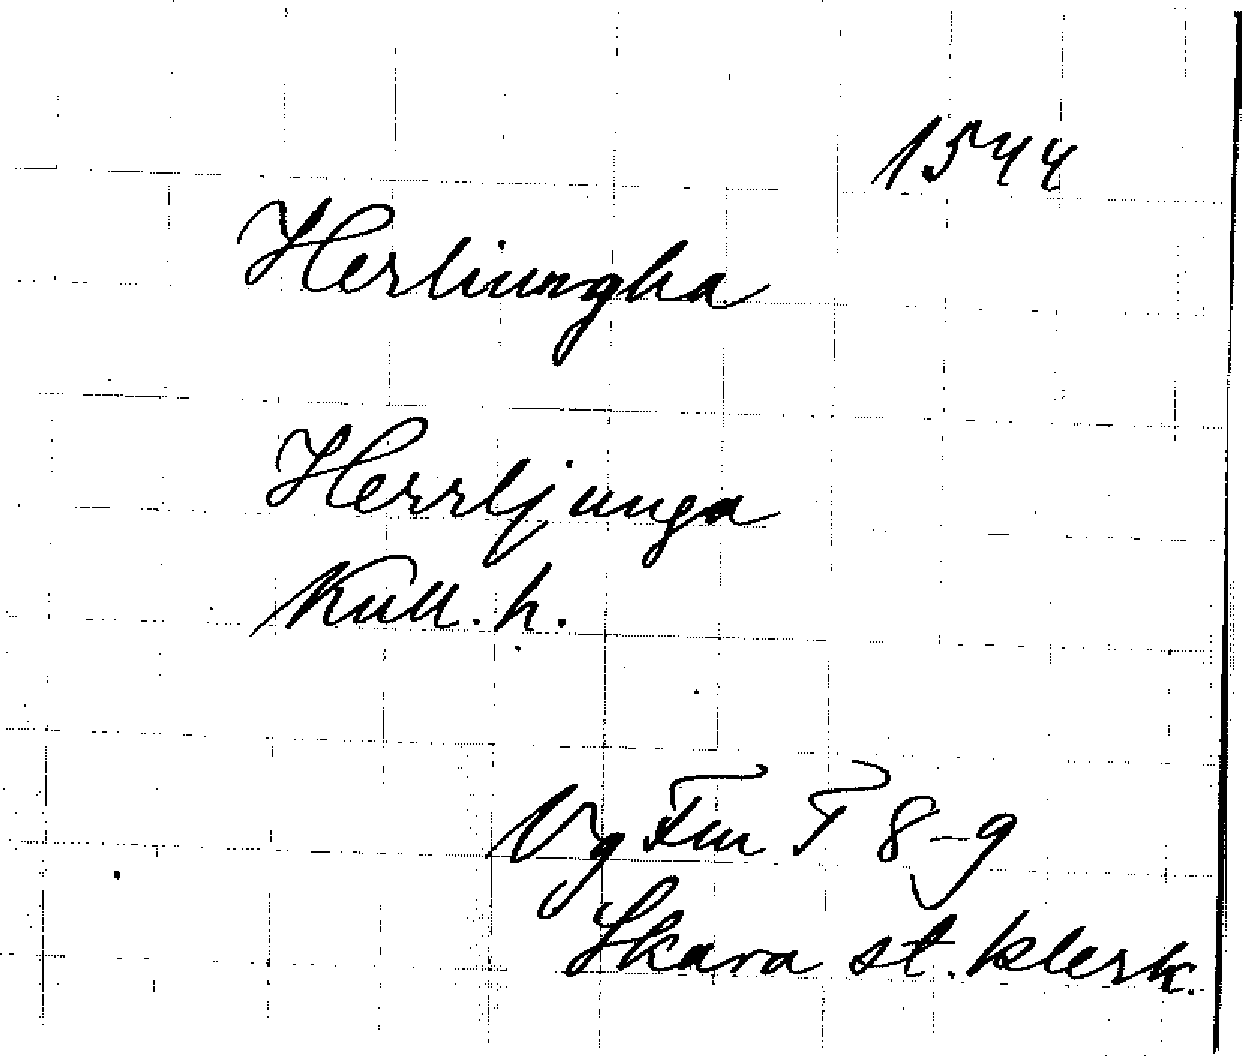 1544
Herliungha
Herrljunga
Kull. h.
Vg Fm T 8-9
Skara st. klerk.